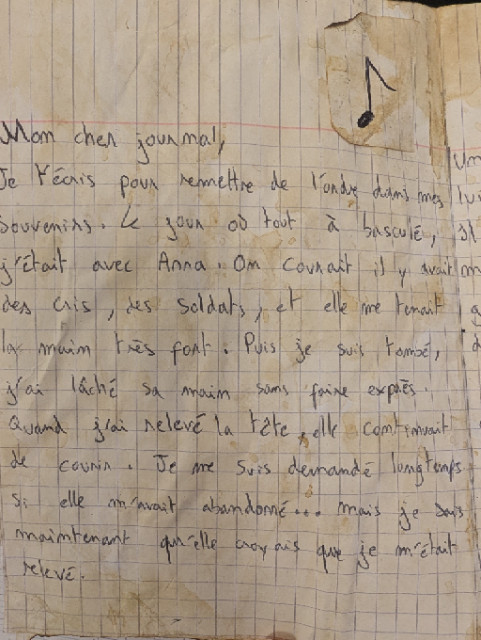 Mon cher journal,
Je t'écris pour remettre de l'ordre dans mes
souvenirs. Le jour où tout à basculé,
j'était avec Anna. On courait il y avait
des cris, des soldats, et elle me tenait
la main très fort. Puis je suis tombé,
j'ai lâché sa main sans faire exprès.
Quand j'ai relevé la tête, elle continuait
de courir. Je me suis demandé longtemps
si elle m'avait abandonné... mais je sais
maintenant qu'elle croyais que je m'était
relevé.